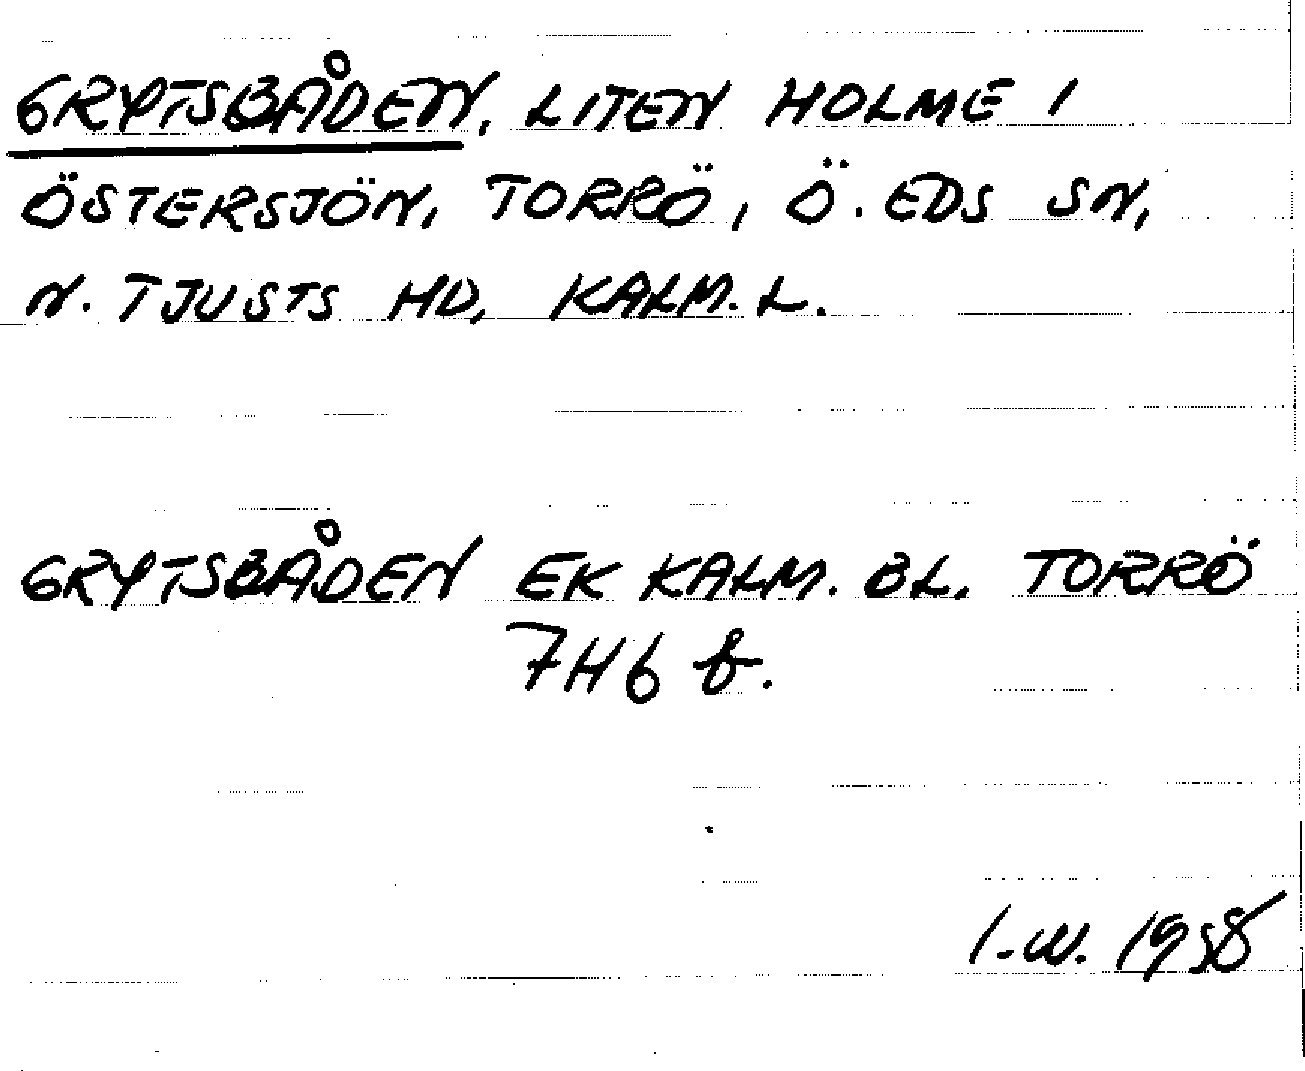 GRYTSBÅDEN, LITEN HOLME I
ÖSTERSJÖN, TORRÖ, Ö. EDS SN,
N. TJUSTS HD, KALM. L.
GRYTSBÅDEN EK KALM. BL. TORRÖ
7H6 f.
I.W. 1958